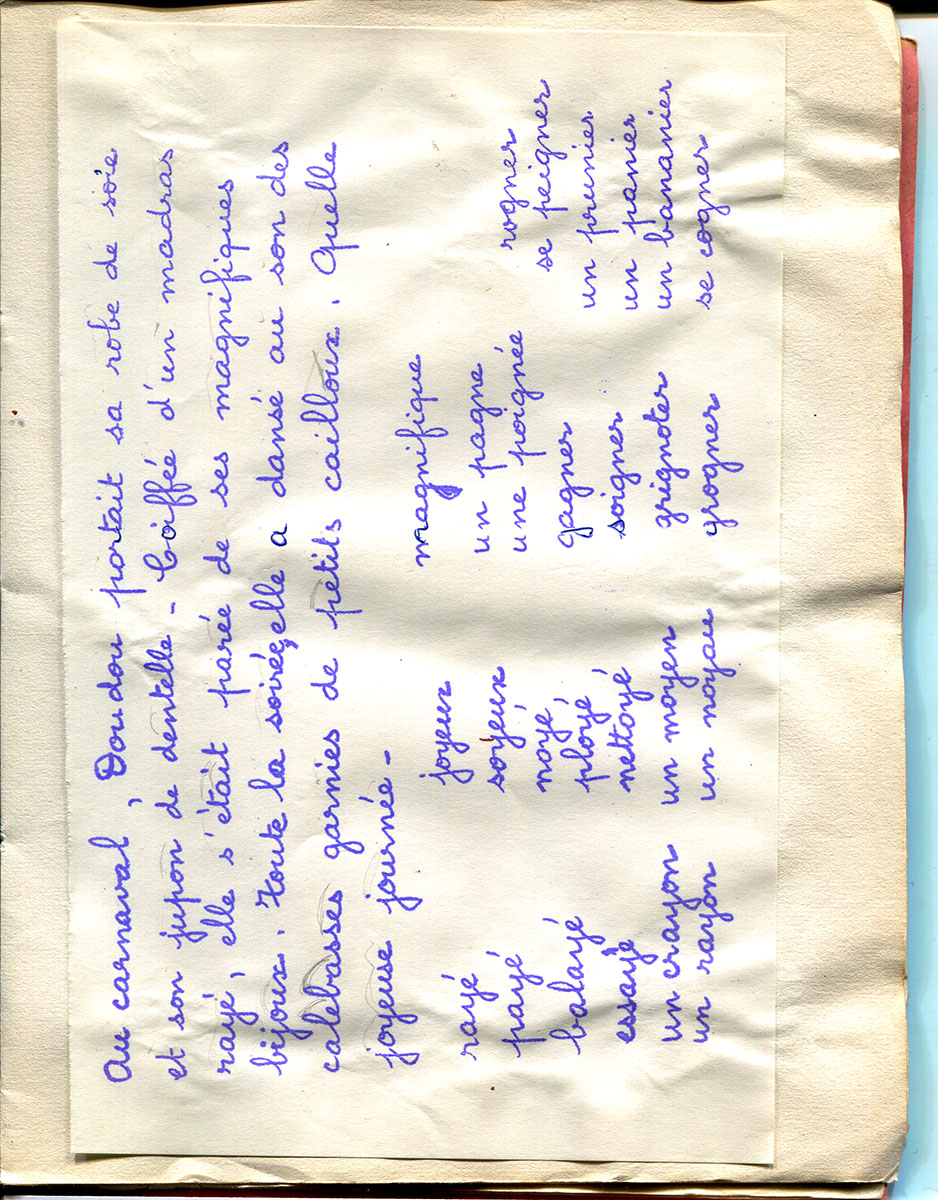 Au carnaval, Doudou portait sa robe de soie
et son jupon de dentelle - Coiffée d'un madras
rayé, elle s'était parée de ses magnifiques
bijoux. Toute la soirée, elle a dansé au son des
calebasses garnies de petits cailloux. Quelle
joyeuse journée -
rayé
payé
balayé
essayé
un crayon
un rayon
joyeux
soyeux
noyé
ployé
nettoyé
un moyen
un noyau
magnifique
un pagne
une poignée
gagner
soigner
grignoter
grogner
rogner
se peigner
un prunier
un panier
un bananier
se cogner